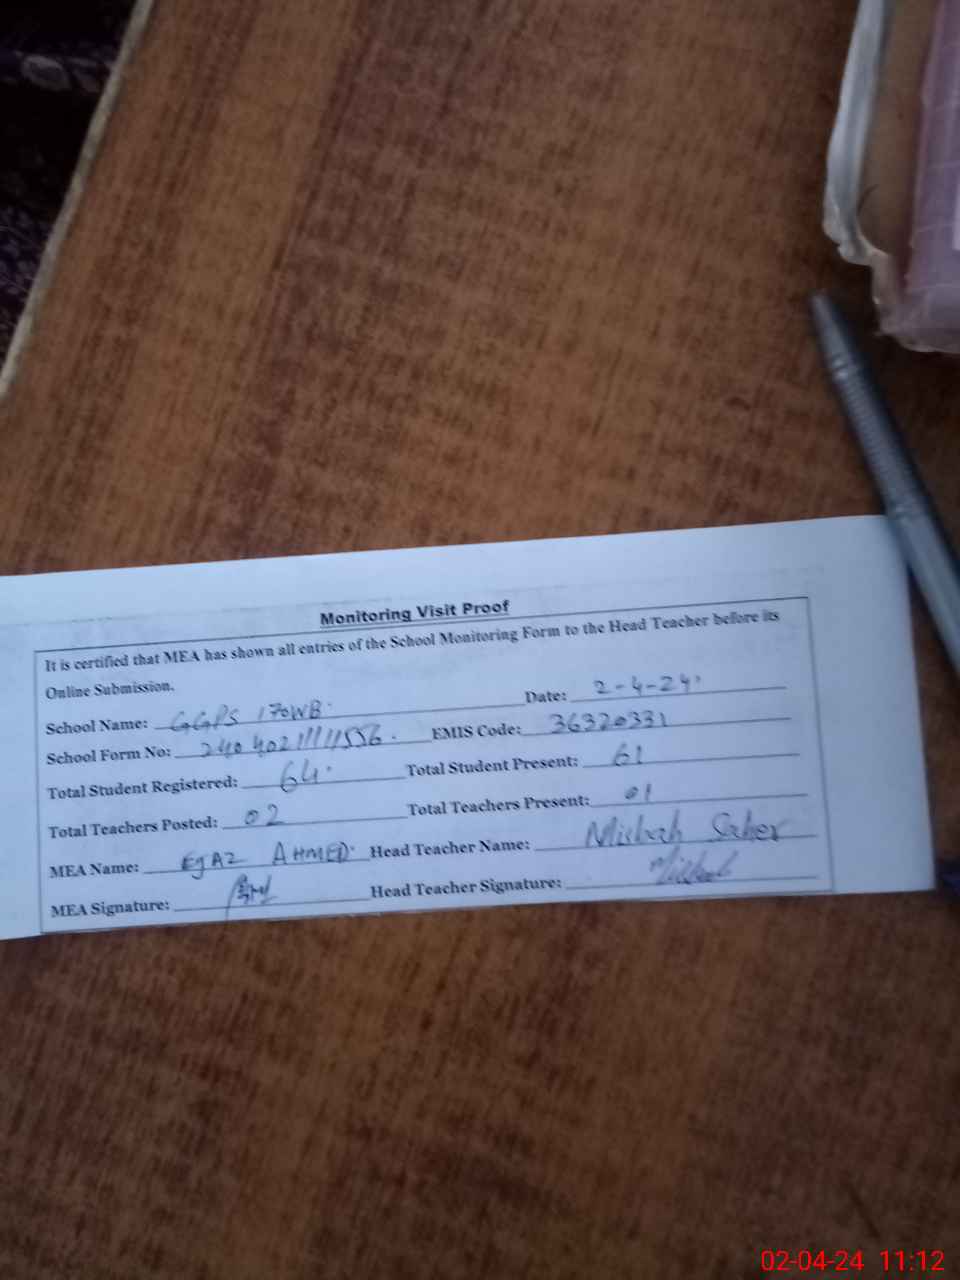 Monitoring Visit Proof
It is certified that MEA has shown all entries of the School Monitoring Form to the Head Teacher before its
Online Submission.
School Name: GGPS 170WB. Date: 2-4-24.
School Form No: EMIS Code: 36320331
Total Student Registered: 64. Total Student Present: 61
Total Teachers Posted: 02 Total Teachers Present: 01
MEA Name: EJAZ AHMED. Head Teacher Name: Misbah Saber
MEA Signature: Head Teacher Signature:
02-04-24 11:12